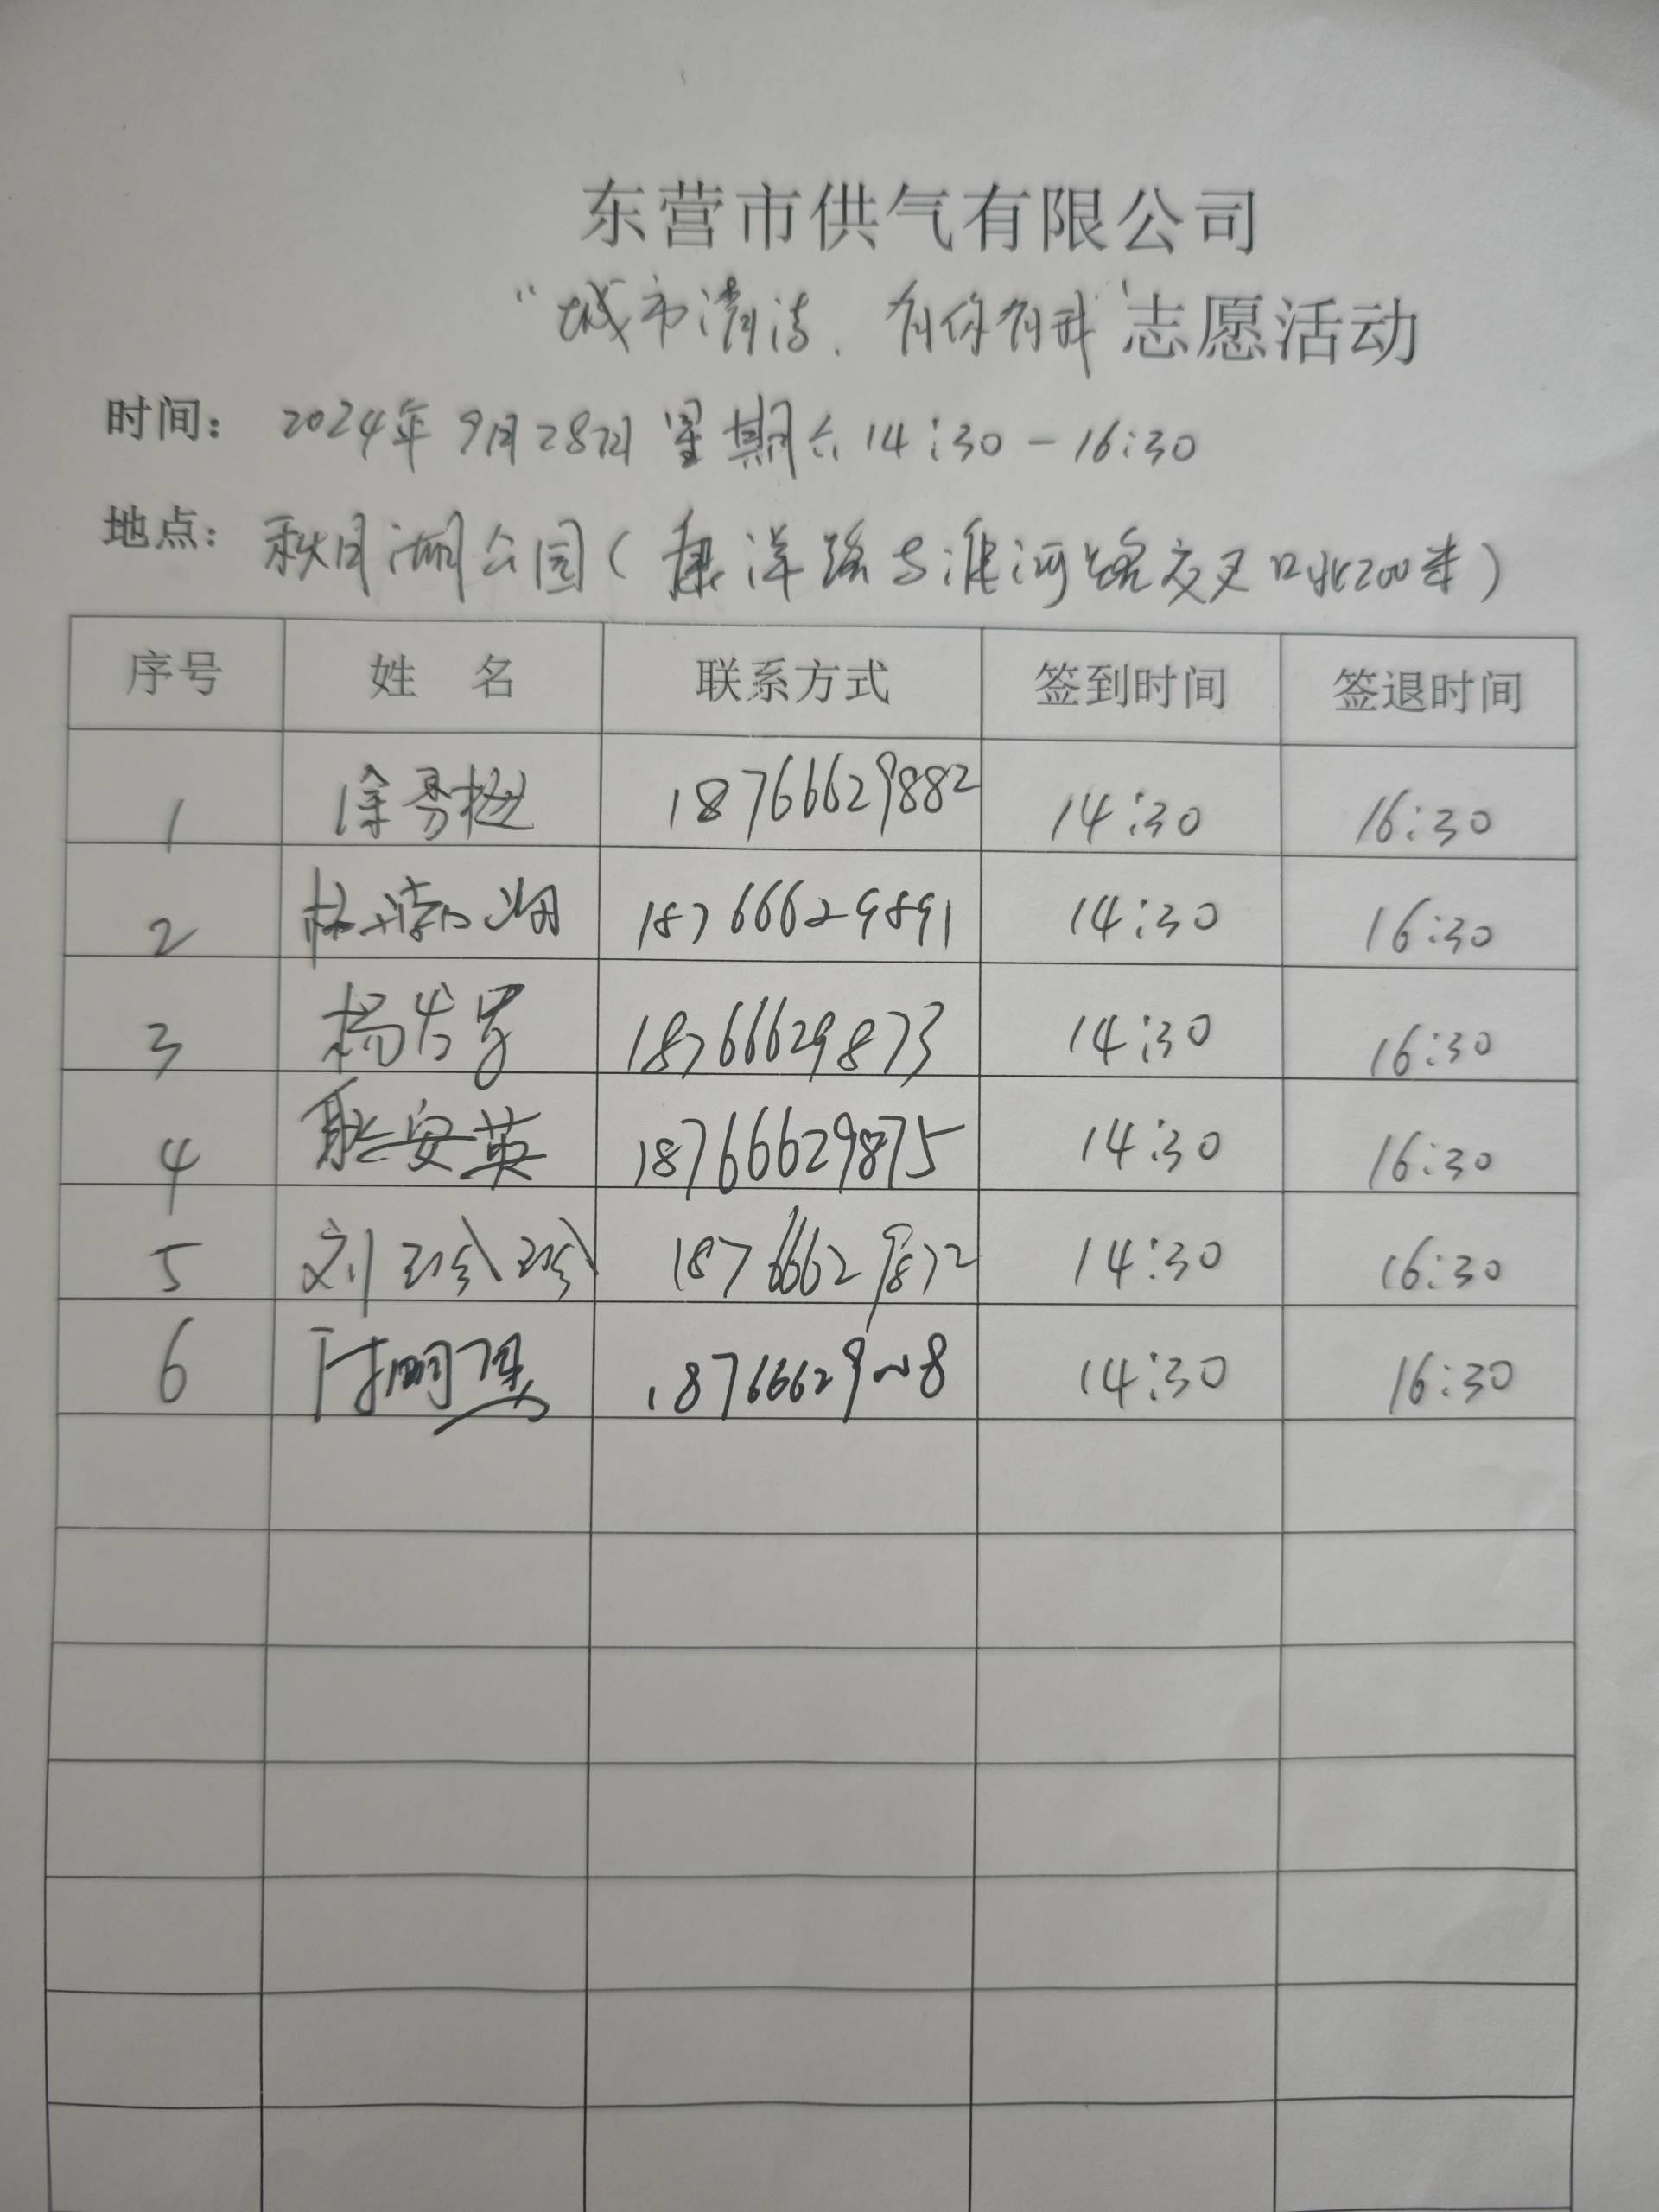 东营市供气有限公司
“城市清洁，有你有我”志愿活动
时间： 2024年9月28日 星期六 14:30-16:30
地点： 秋月湖公园(康洋路与淮河路交叉口北200米)
序号 姓 名 联系方式 签到时间 签退时间
1 徐秀挺 18766629882 14:30 16:30
2 18766629891 14:30 16:30
3 杨 18766629873 14:30 16:30
4 耿安英 18766629875 14:30 16:30
5 刘玲玲 18766629872 14:30 16:30
6 14:30 16:30